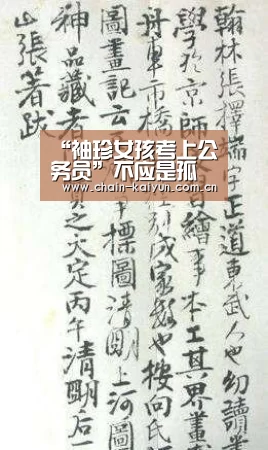 翰林張擇端字正道東武人也幼讀
學於京師習繪事本工其界畫
舟車市橋別成家數也按向氏
圖畫記云爭標圖清明上河圖
神品藏者寶之大定丙午清明后一
山張著跋
“袖珍女孩考上公
务员”不应是孤
www.chain-kaiyun.com.cn